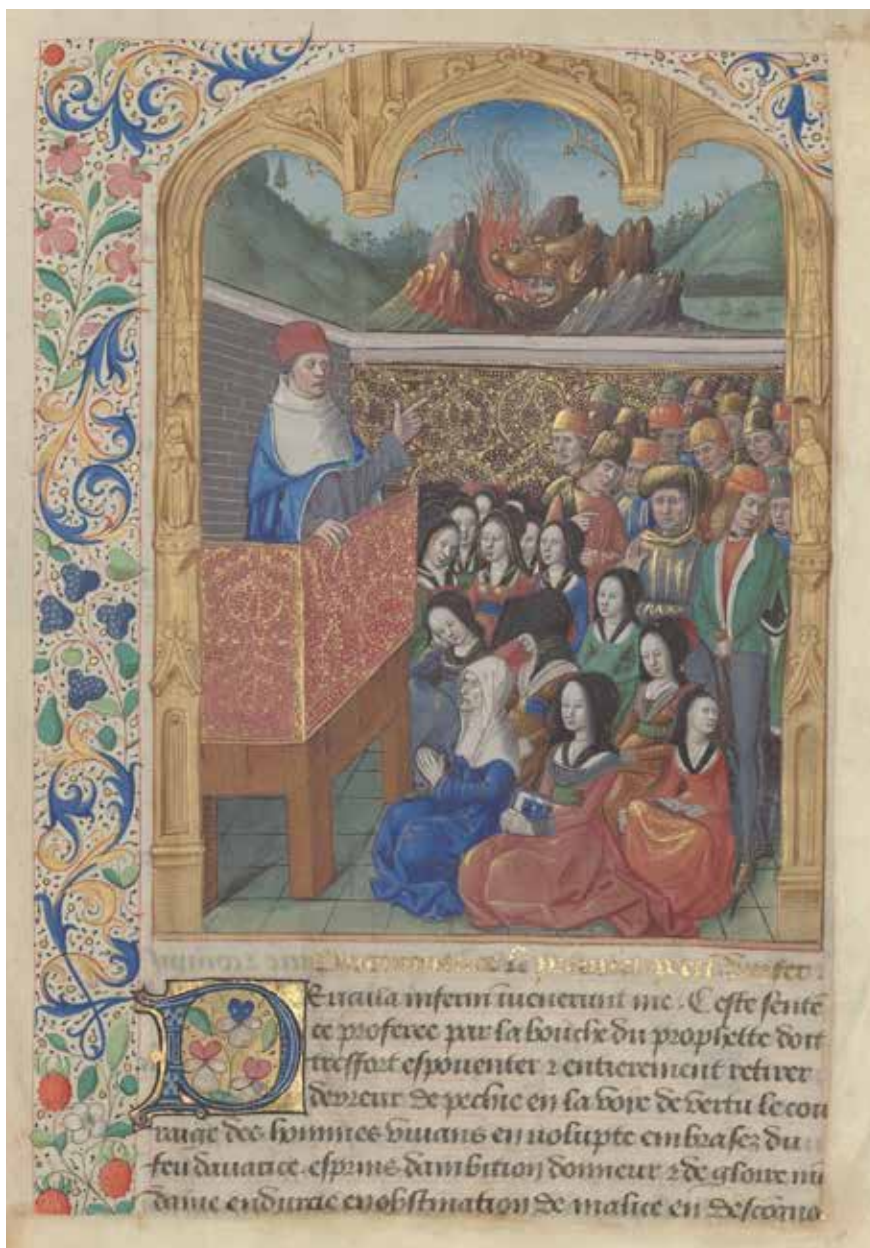 Pericula inferni inuenerunt me. Ceste sente
ce proferee par la bouche du prophette doit
tresfort espouenter ⁊ entierement retirer
de pechie en la voye de vertu le cou
raige des hommes viuans en volupte embrasez du
feu dauarice. espris dambition donneur ⁊ de gloire mũ
daine endurcie en obstination de malice en descõgno